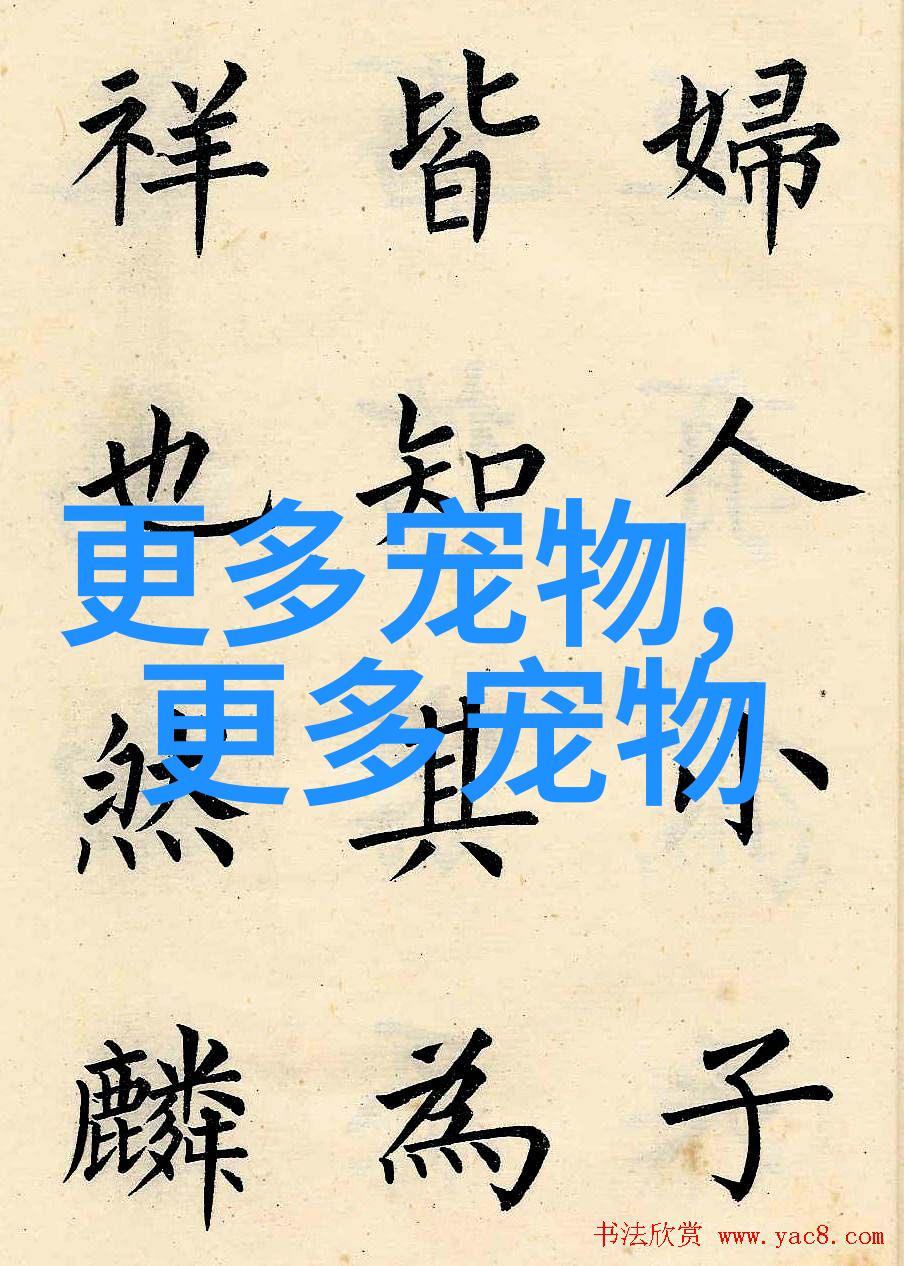 婦人小子
皆知其為
祥也然麟
更多宠物，
更多宠物
书法欣赏 www.yac8.com